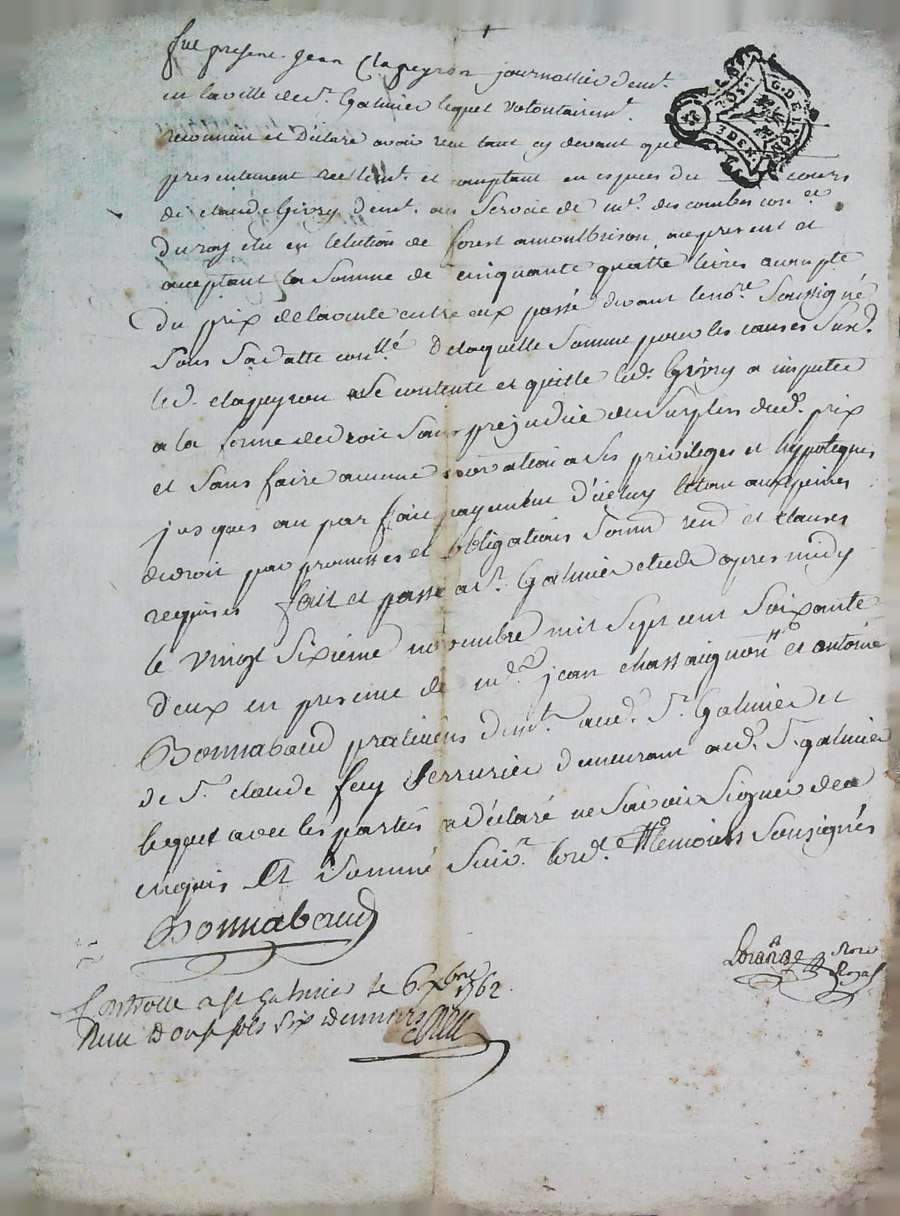 fut present Jean Clapeyron journallier demt.
en la ville de St. Galmier lequel volontairemt.
reconnu et Déclaré avoir reçu tant cy devant que
presentement reellemt. et comptant en especes du cours
de claude Givry demt. au service de mr. des combes con.er
du roy elu en lélection de forest a montbrison, acy present et
acceptant la somme de cinquante quatte livres acompte
Du prix de la vente entre eux passé devant le nore. Soussigné
Sous sa datte con.llé De laquelle somme pour les causes susd.
led. clapeyron se contente et quitte led. Givry a imputer
a la forme de droit sans prejudice du surplus dud. prix
et sans faire aucune novation a ses privileges et hypoteques
jusques au par fait payement d'iceluy le tout aux peines
de droit par promesses et obligations soum. ren. et clauses
requises fait et passé a St. Galmier etude apres midy
le vingt sixiéme novembre mil sept cent soixante
deux en presence de me. jean chassaignon et antoine
Bonnabaud praticiens demt. aud. St. Galmier et
de Sr. claude fay serrurier demeurant aud. St. galmier
lequel avec les parties a déclaré ne savoir signer de ce
enquis Et sommé suivt. lord. Temoins sousignés
Bonnabaud
nore
Royal
Controlle a st Galmier le 6 xbre 1762.
Reçu Douze sols six deniers
G. DE LYON